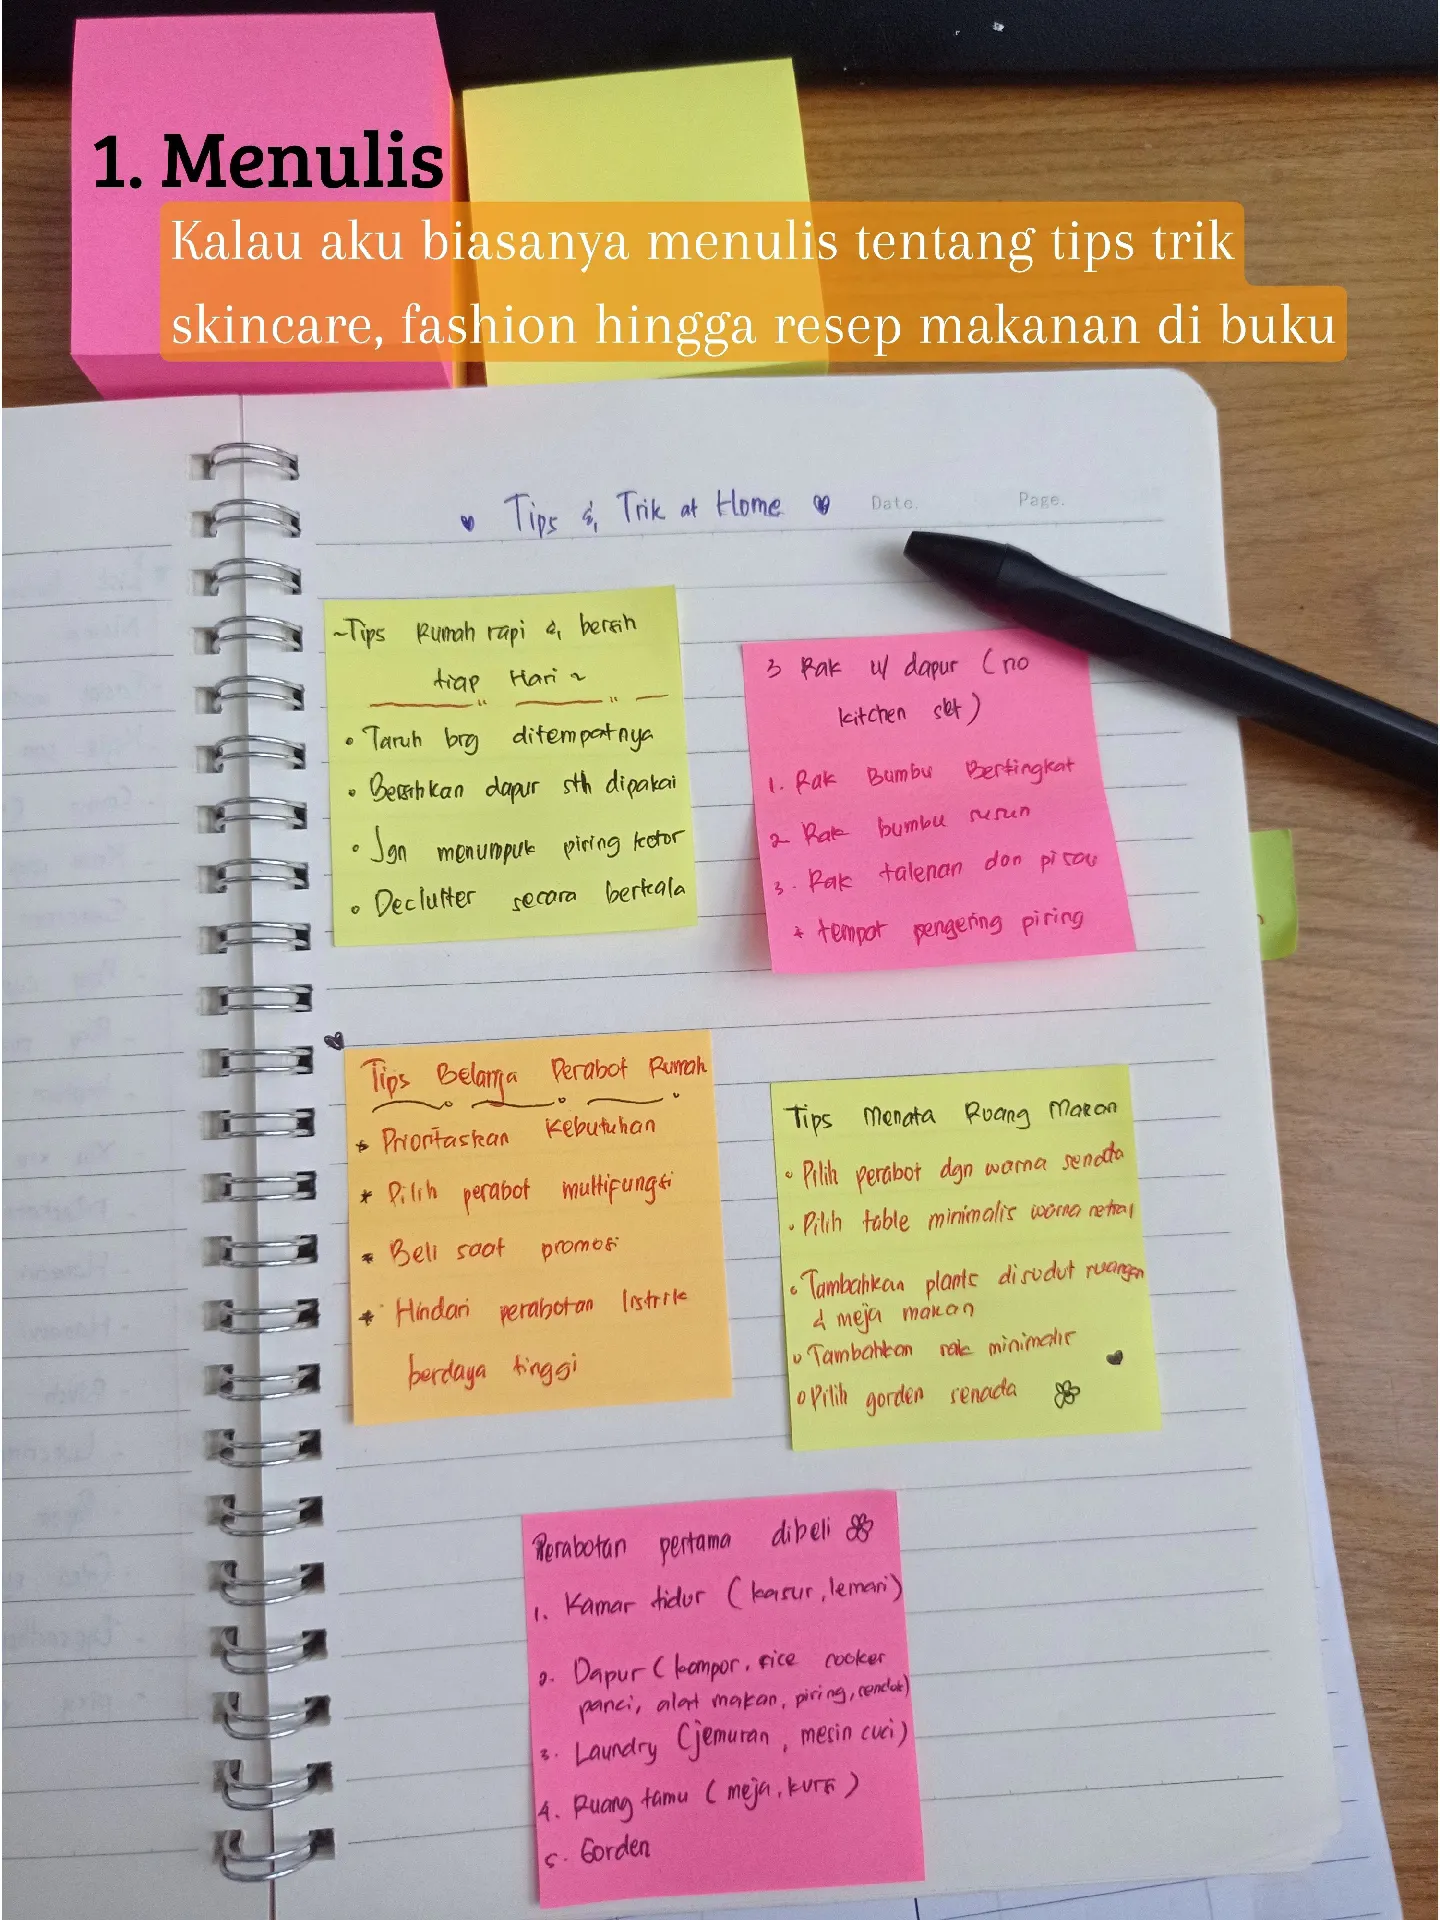 1. Menulis
Kalau aku biasanya menulis tentang tips trik
skincare, fashion hingga resep makanan di buku
Tips & Trik at Home
Date.
Page.
~Tips Rumah rapi & bersih
tiap Hari ~
• Taruh brg ditempatnya
• Bersihkan dapur sth dipakai
• Jgn menumpuk piring kotor
• Declutter secara berkala
3 Rak u/ dapur (no
kitchen set)
1. Rak Bumbu Bertingkat
2 Rak bumbu susun
3. Rak talenan dan pisau
* tempat pengering piring
Tips Belanja Perabot Rumah
* Prioritaskan Kebutuhan
* Pilih perabot multifungsi
* Beli saat promosi
* Hindari perabotan listrik
berdaya tinggi
Tips Menata Ruang Makan
• Pilih perabot dgn warna senada
• Pilih table minimalis warna netral
• Tambahkan plants disudut ruangan
& meja makan
• Tambahkan rak minimalis
• Pilih gorden senada
Perabotan pertama dibeli
1. Kamar tidur (kasur, lemari)
2. Dapur (kompor, rice cooker
panci, alat makan, piring, sendok)
3. Laundry (jemuran, mesin cuci)
4. Ruang tamu (meja, kursi)
5. Gorden